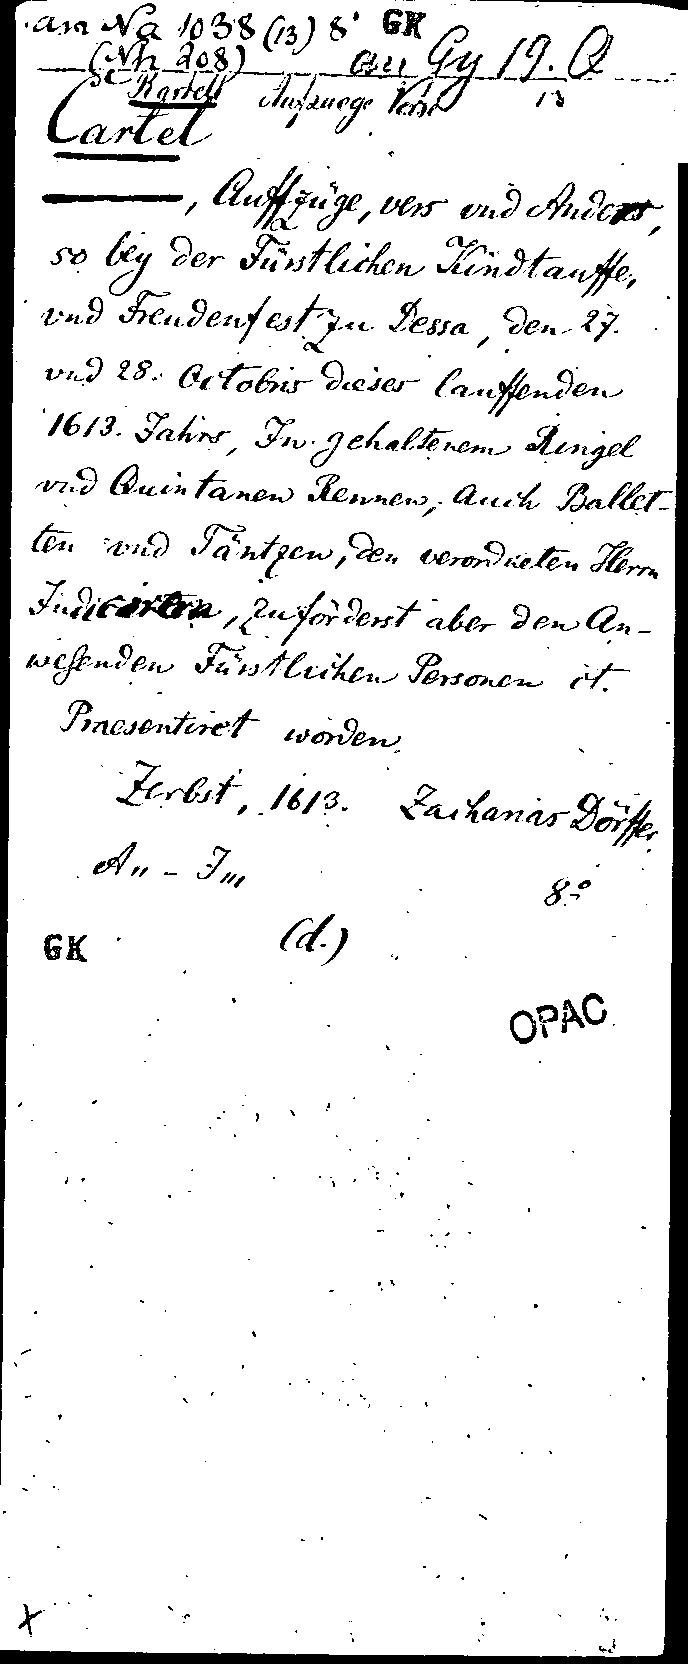 an Na 1038 (13) 8° GK
(Nh 208) an Gy 19. Q
Kartell Aufzuege Verse 13
Cartel
———, Auffzüge, vers vnd Anders,
so bey der Fürstlichen Kindtauffe,
vnd Freudenfest zu Dessa, den 27.
vnd 28. Octobris dieses lauffenden
1613. Jahrs, In gehaltenem Ringel
vnd Quintanen Rennen, Auch Ballet-
ten vnd Täntzen, den verordneten Herrn
zuförderst aber den An-
wesenden Fürstlichen Personen
Praesentiret worden.
Zerbst, 1613. Zacharias Dörffer.
A - J
8°
GK (d.)
OPAC